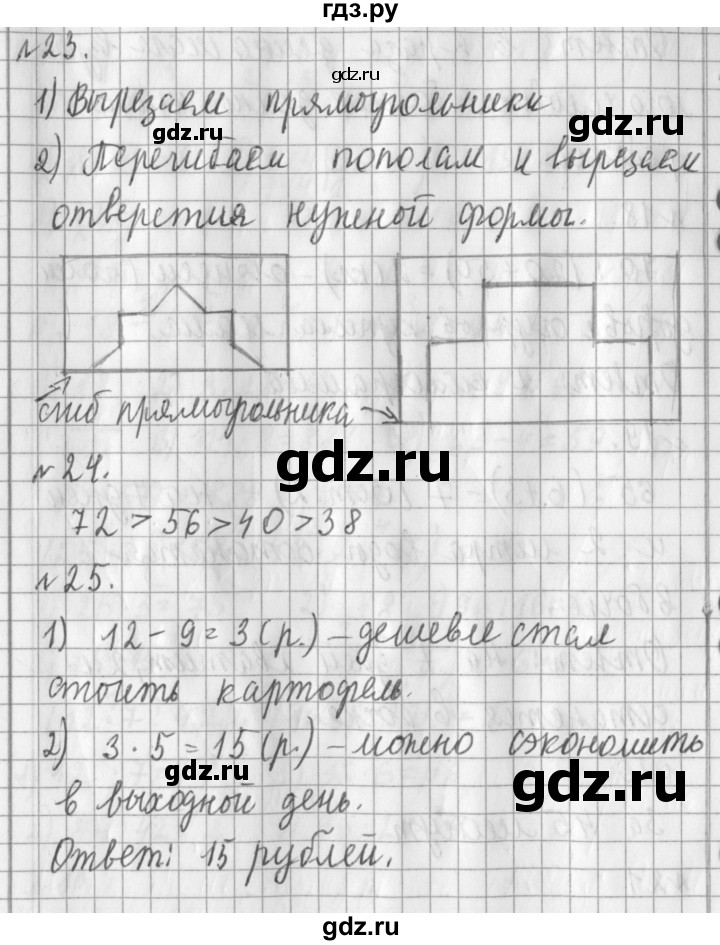 гдз.ру
№23.
gdz.ru
1) Вырезаем прямоугольники
gdz.ru
gdz.ru
2) Перегибаем пополам и вырезаем
отверстия нужной формы.
gdz.ru
сгиб прямоугольника
gdz.ru
№24.
72 > 56 > 40 > 38
gdz.ru
№25.
1) 12 - 9 = 3 (р.) - дешевле стал
стоить картофель.
gdz.ru
2) 3 · 5 = 15 (р.) - можно сэкономить
gdz.ru
gdz.ru
в выходной день.
Ответ: 15 рублей.
gdz.ru
gdz.ru